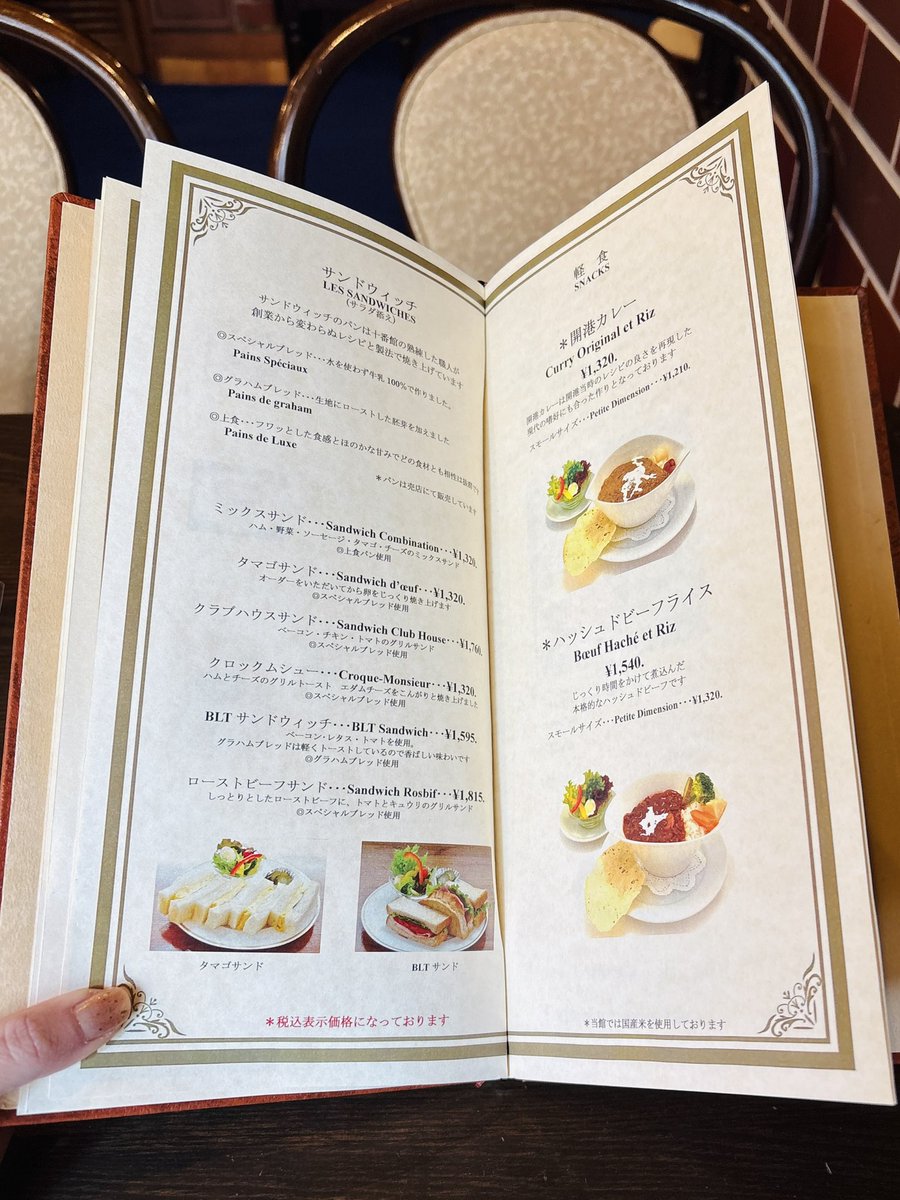 サンドウィッチ
LES SANDWICHES
(サラダ添え)
サンドウィッチのパンは十番館の熟練した職人が
創業から変わらぬレシピと製法で焼き上げています
◎スペシャルブレッド･･･水を使わず牛乳100%で作りました。
Pains Spéciaux
◎グラハムブレッド･･･生地にローストした胚芽を加えました
Pains de graham
◎上食･･･フワッとした食感とほのかな甘みでどの食材とも相性は抜群です
Pains de Luxe
＊パンは売店にて販売しています
ミックスサンド･･･Sandwich Combination･･･¥1,320.
ハム・野菜・ソーセージ・タマゴ・チーズのミックスサンド
◎上食パン使用
タマゴサンド･･･Sandwich d'œuf･･･¥1,320.
オーダーをいただいてから卵をじっくり焼き上げます
◎スペシャルブレッド使用
クラブハウスサンド･･･Sandwich Club House･･･¥1,760.
ベーコン・チキン・トマトのグリルサンド
◎スペシャルブレッド使用
クロックムシュー･･･Croque-Monsieur･･･¥1,320.
ハムとチーズのグリルトースト　エダムチーズをこんがりと焼き上げました
◎スペシャルブレッド使用
BLT サンドウィッチ･･･BLT Sandwich･･･¥1,595.
ベーコン・レタス・トマトを使用。
グラハムブレッドは軽くトーストしているので香ばしい味わいです
◎グラハムブレッド使用
ローストビーフサンド･･･Sandwich Rosbif･･･¥1,815.
しっとりとしたローストビーフに、トマトとキュウリのグリルサンド
◎スペシャルブレッド使用
タマゴサンド
BLT サンド
＊税込表示価格になっております
軽 食
SNACKS
＊開港カレー
Curry Original et Riz
¥1,320.
開港カレーは開港当時のレシピの良さを再現した
現代の嗜好にも合った作りとなっております
スモールサイズ･･･Petite Dimension･･･¥1,210.
＊ハッシュドビーフライス
Bœuf Haché et Riz
¥1,540.
じっくり時間をかけて煮込んだ
本格的なハッシュドビーフです
スモールサイズ･･･Petite Dimension･･･¥1,320.
＊当館では国産米を使用しております